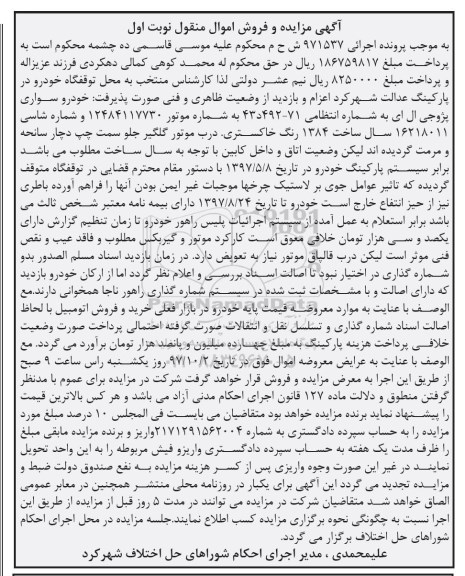 آگهی مزایده و فروش اموال منقول نوبت اول
به موجب پرونده اجرائی ۹۷۱۵۳۷ ش ح م محکوم علیه موسی قاسمی ده چشمه محکوم است به
پرداخت مبلغ ۱۸۶۷۵۹۸۱۷ ریال در حق محکوم له محمد کوهی کمالی دهکردی فرزند عزیزاله
و پرداخت مبلغ ۸۲۵۰۰۰۰ ریال نیم عشر دولتی لذا کارشناس منتخب به محل توقفگاه خودرو در
پارکینگ عدالت شهرکرد اعزام و بازدید از وضعیت ظاهری و فنی صورت پذیرفت: خودرو سواری
پژوجی ال ای به شماره انتظامی ۷۱-۴۹۲د۴۳ به شماره موتور ۱۲۴۸۴۱۱۷۷۳۰ و شماره شاسی
۱۶۲۱۸۰۱۱ سال ساخت ۱۳۸۴ رنگ خاکستری. درب موتور گلگیر جلو سمت چپ دچار سانحه
و مرمت گردیده اند لیکن وضعیت اتاق و داخل کابین با توجه به سال ساخت مطلوب می باشد
برابر سیستم پارکینگ خودرو در تاریخ ۱۳۹۷/۵/۸ با دستور مقام محترم قضایی در توقفگاه متوقف
گردیده که تاثیر عوامل جوی بر لاستیک چرخها موجبات غیر ایمن بودن آنها را فراهم آورده باطری
نیز از حیز انتفاع خارج است خودرو تا تاریخ ۱۳۹۷/۸/۲۴ دارای بیمه نامه معتبر شخص ثالث می
باشد برابر استعلام به عمل آمده از سیستم اجرائیات پلیس راهور خودرو تا زمان تنظیم گزارش دارای
یکصد و سی هزار تومان خلافی معوق است کارکرد موتور و گیربکس مطلوب و فاقد عیب و نقص
فنی موثر است لیکن درب قالپاق موتور نیاز به تعویض دارد. در زمان بازدید اسناد مسلم الصدور بدو
شماره گذاری در اختیار نبود تا اصالت اسناد بررسی و اعلام نظر گردد اما از ارکان خودرو بازدید
که دارای اصالت و با مشخصات ثبت شده در سیستم شماره گذاری راهور ناجا همخوانی دارند.مع
الوصف با عنایت به موارد معروضه قیمت پایه خودرو در بازار فعلی خرید و فروش اتومبیل با لحاظ
اصالت اسناد شماره گذاری و تسلسل نقل و انتقالات صورت گرفته احتمالی پرداخت صورت وضعیت
خلافی پرداخت هزینه پارکینگ به مبلغ چهارده میلیون و پانصد هزار تومان برآورد می گردد. مع
الوصف با عنایت به عرایض معروضه اموال فوق در تاریخ ۹۷/۱۰/۲ روز یکشنبه راس ساعت ۹ صبح
از طریق این اجرا به معرض مزایده و فروش قرار خواهد گرفت شرکت در مزایده برای عموم با مدنظر
گرفتن منطوق و دلالت ماده ۱۲۷ قانون اجرای احکام مدنی آزاد می باشد و هر کس بالاترین قیمت
را پیشنهاد نماید برنده مزایده خواهد بود متقاضیان می بایست فی المجلس ۱۰ درصد مبلغ مورد
مزایده را به حساب سپرده دادگستری به شماره ۲۱۷۱۲۹۱۵۶۲۰۰۴ واریز و برنده مزایده مابقی مبلغ
را ظرف مدت یک هفته به حساب سپرده دادگستری واریزو فیش مربوطه را به این واحد تحویل
نمایند در غیر این صورت وجوه واریزی پس از کسر هزینه مزایده به نفع صندوق دولت ضبط و
مزایده تجدید می گردد این آگهی برای یکبار در روزنامه محلی منتشر همچنین در معابر عمومی
الصاق خواهد شد متقاضیان شرکت در مزایده می توانند در مدت ۵ روز قبل از مزایده از طریق این
اجرا نسبت به چگونگی نحوه برگزاری مزایده کسب اطلاع نمایند.جلسه مزایده در محل اجرای احکام
شوراهای حل اختلاف برگزار می گردد.
علیمحمدی ، مدیر اجرای احکام شوراهای حل اختلاف شهرکرد
ParaNamadData